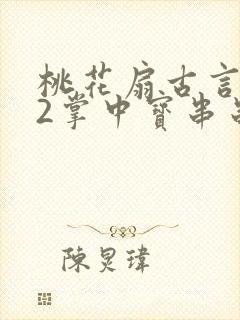 桃花扇古言
2掌中寶串
陳炅瑋